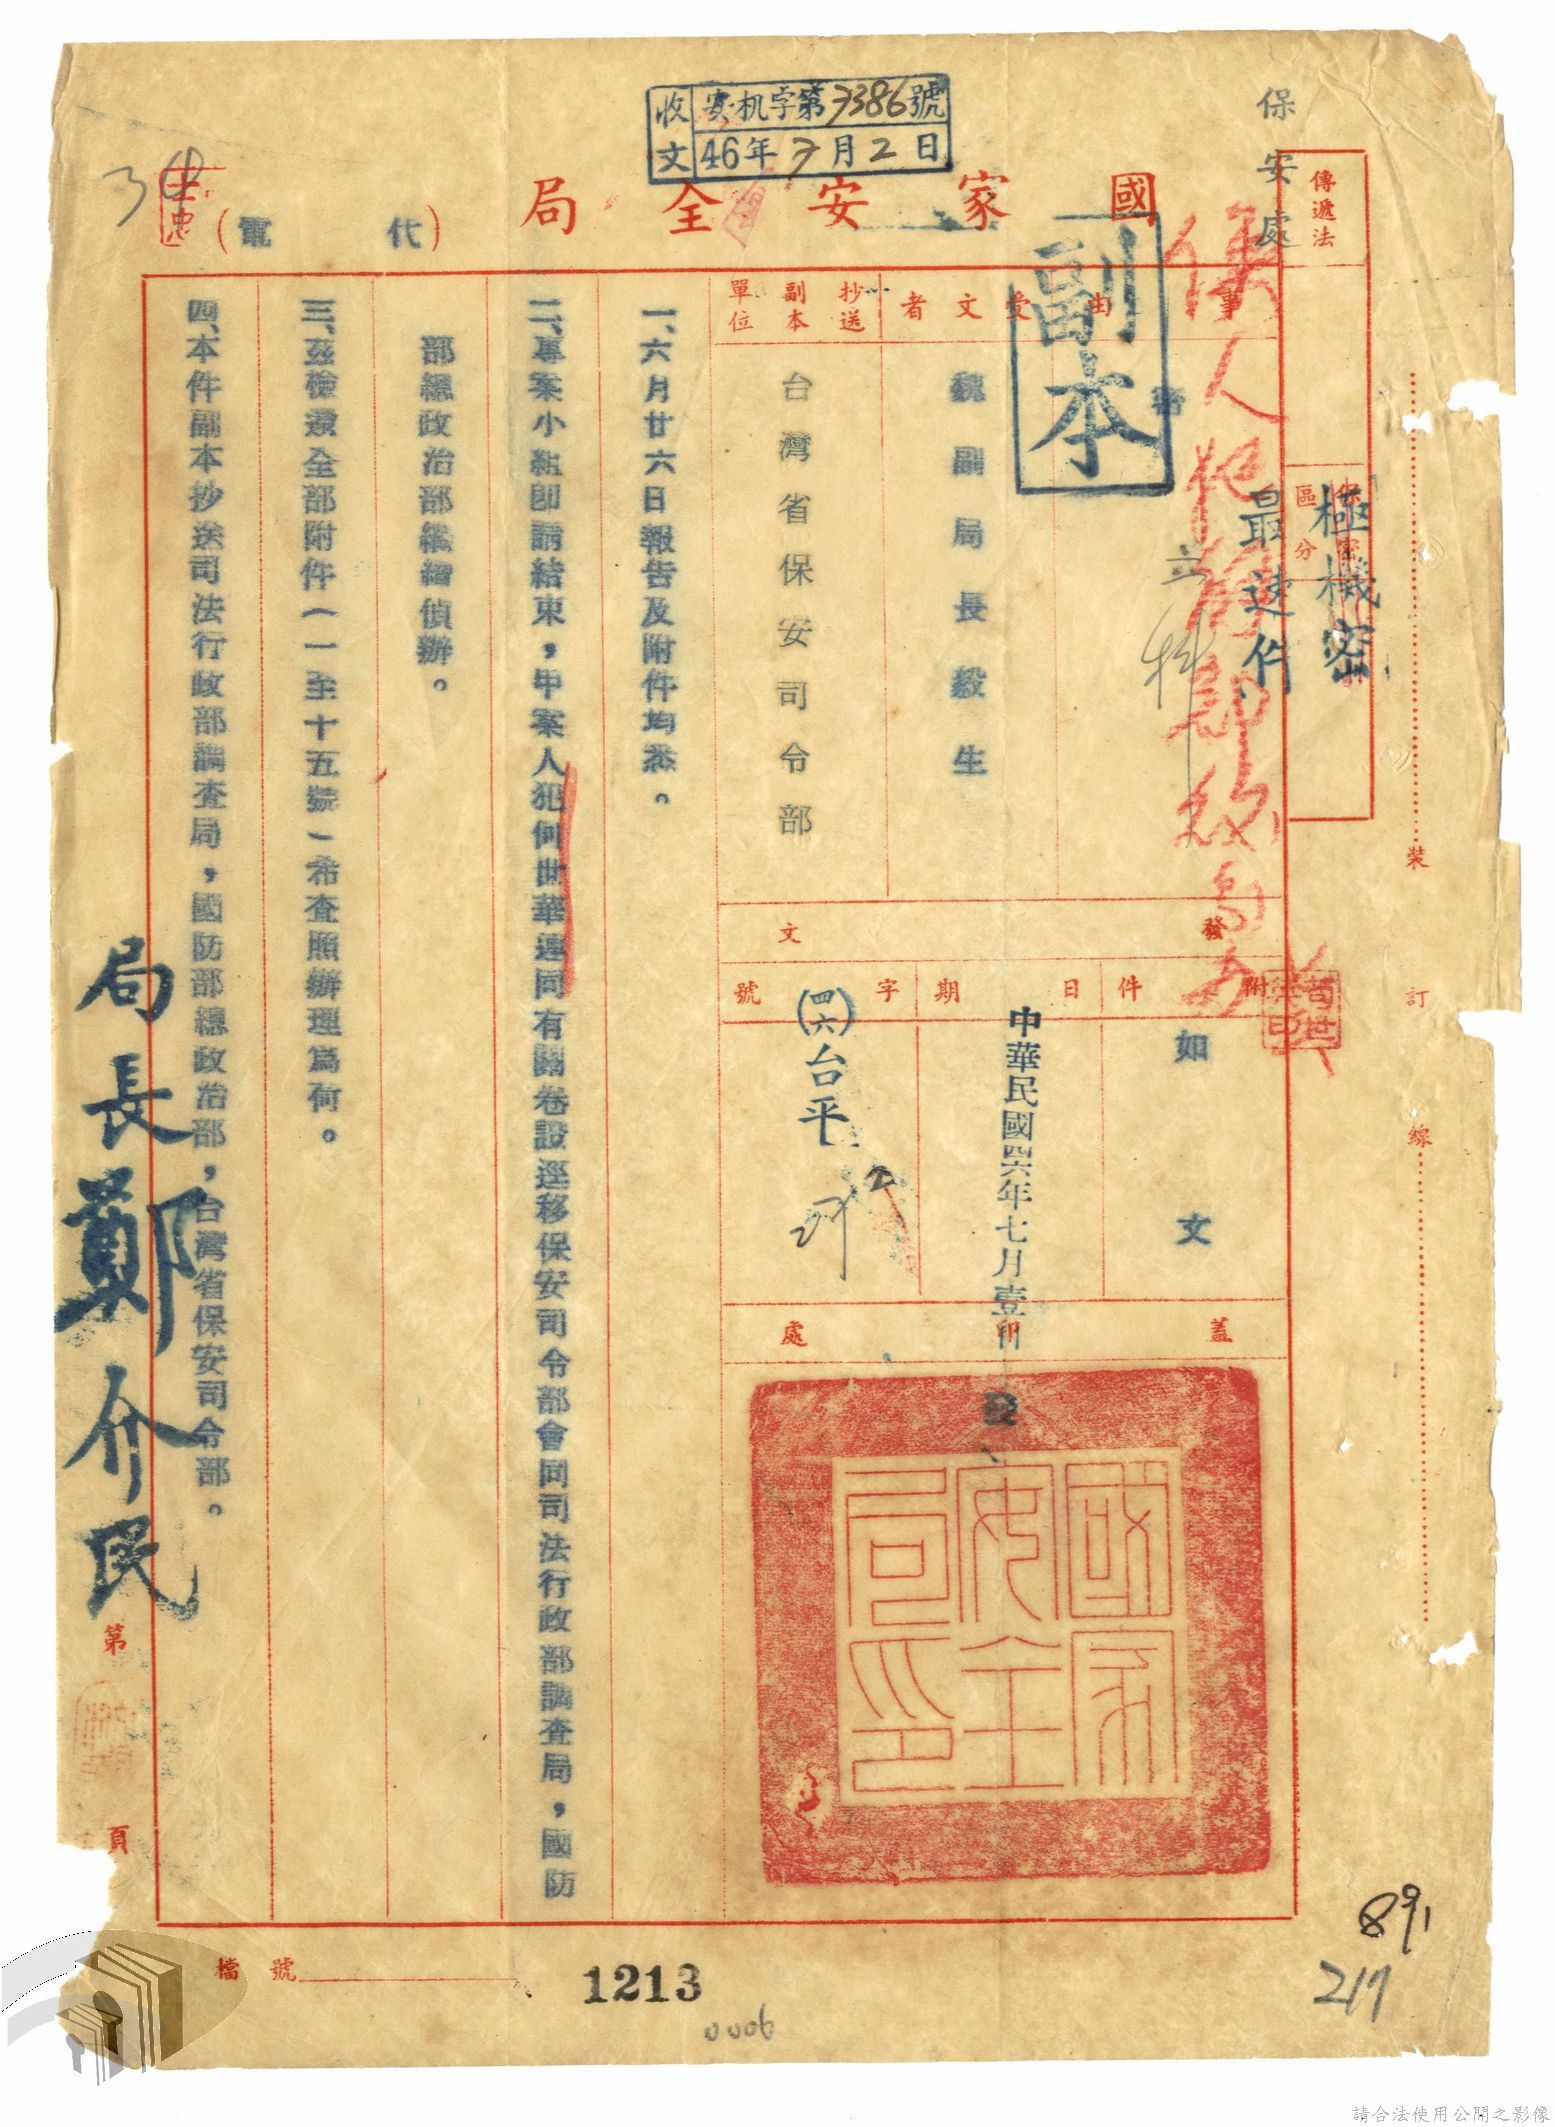 收文
安机字第7386號
46年7月2日
保安處
國家安全局
(代電)
傳遞法
保密區分
極機密
最速件
副本
事由
受文者
魏副局長毅生
抄送副本單位
台灣省保安司令部
發文
附件
如文
日期
中華民國四六年七月壹
字號
(四六)台平
蓋印處
發
國家安全局印
一、六月廿六日報告及附件均悉。
二、專案小組即請結束，甲案人犯何世華連同有關卷證逕移保安司令部會同司法行政部調查局，國防
部總政治部繼續偵辦。
三、茲檢還全部附件(一至十五號)希查照辦理為荷。
四、本件副本抄送司法行政部調查局，國防部總政治部，台灣省保安司令部。
局長鄭介民
第
頁
裝
訂
線
檔號
1213
0006
891
217
請合法使用公開之影像